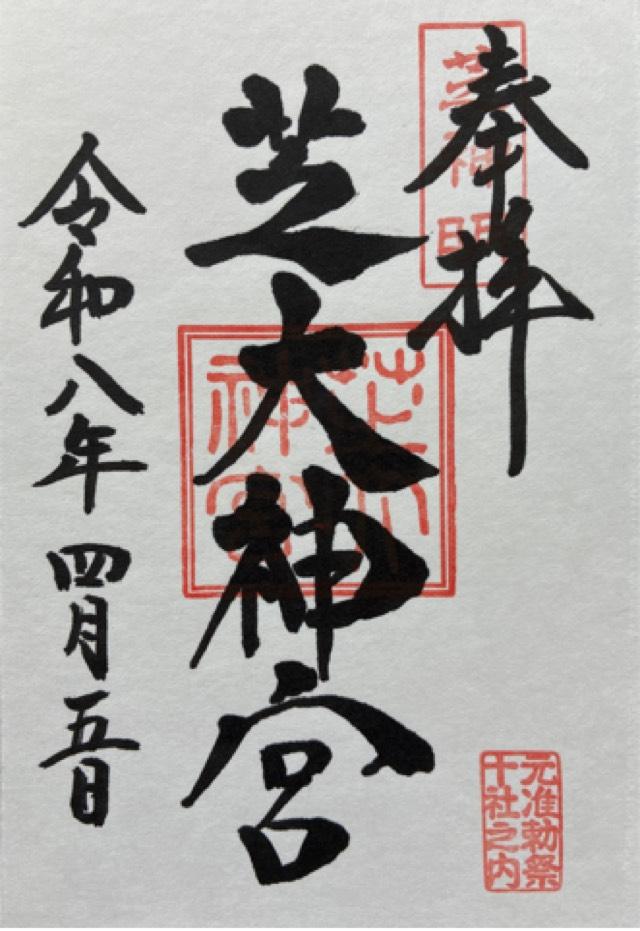 奉拝
芝神明
芝大神宮
芝大神宮
令和八年四月五日
元准勅祭
十社之内